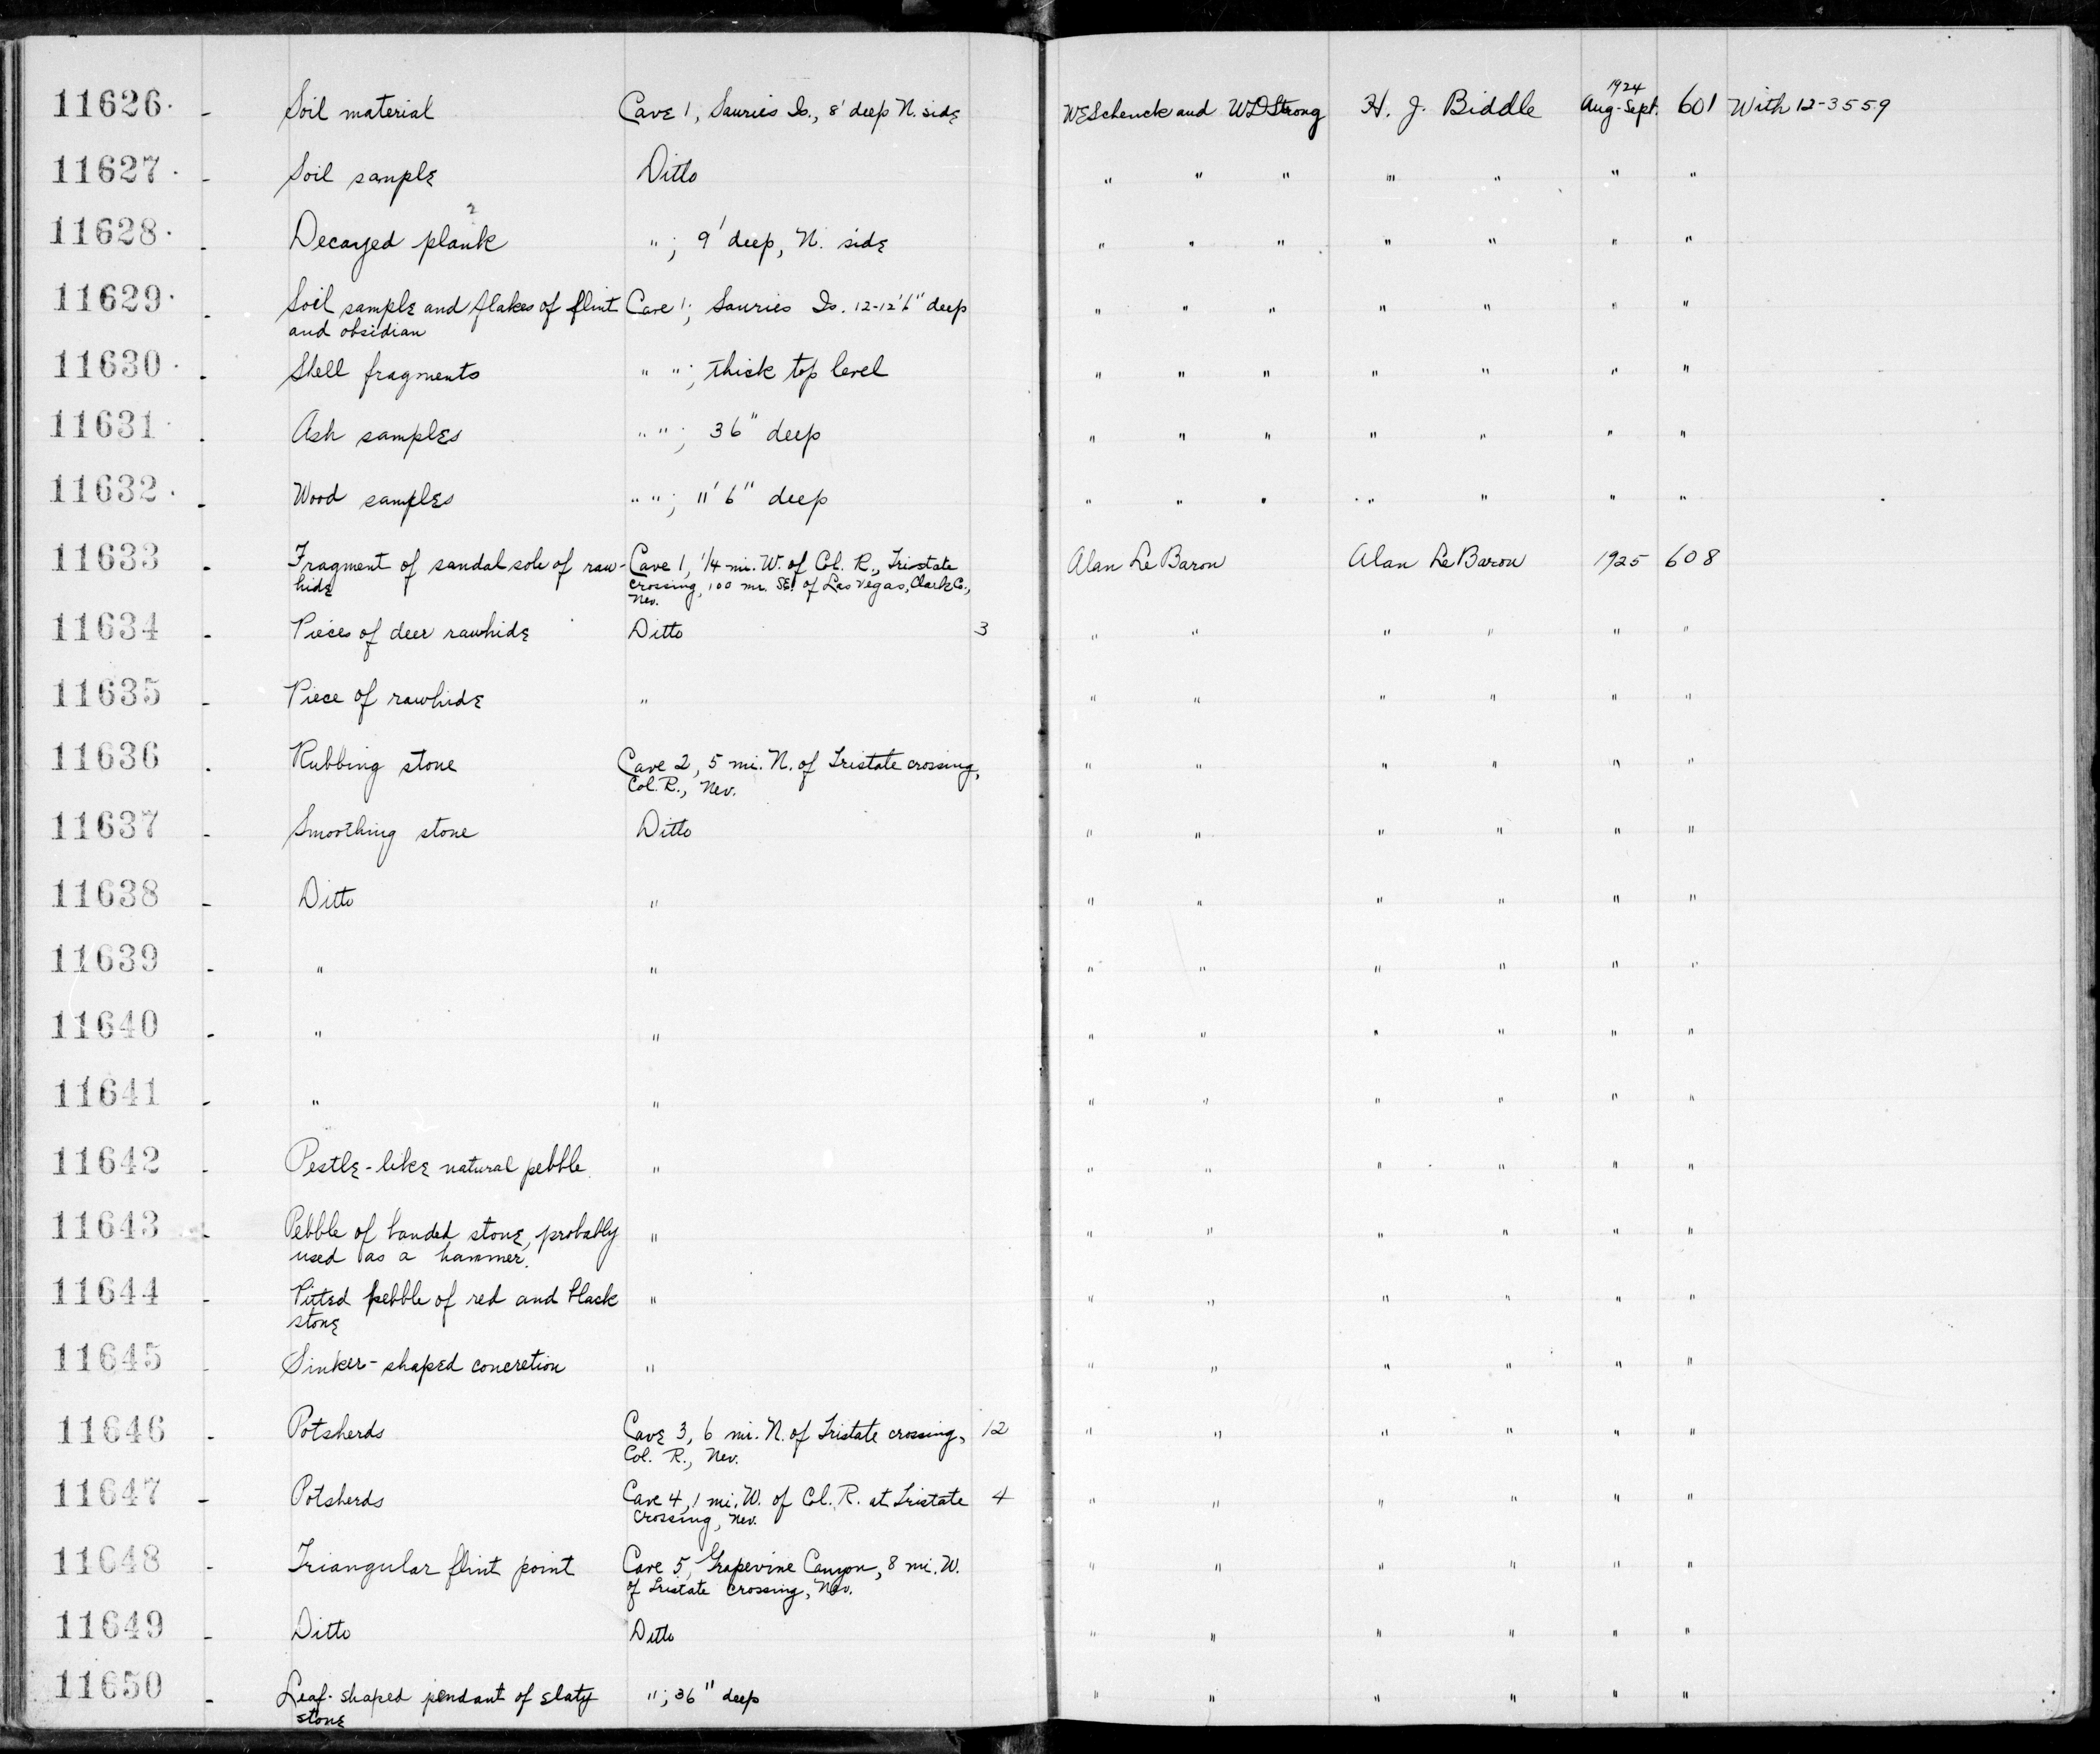 11626. - Soil material Cave 1, Sauries Is., 8' deep N. side WESchenck and WDStrong H. J. Biddle 1924 Aug-Sept. 601 With 12-3559
11627. - Soil sample Ditto " " " " " " "
11628. - Decayed plank ? "; 9' deep, N. side " " " " " " "
11629. - Soil sample and flakes of flint Cave 1; Sauries Is. 12-12'6" deep " " " " " " "
and obsidian
11630. - Shell fragments " "; thick top level " " " " " " "
11631. - Ash samples " "; 36" deep " " " " " " "
11632. - Wood samples " "; 11'6" deep " " " " " " "
11633 - Fragment of sandal sole of raw- Cave 1, 1/4 mi. W. of Col. R., Tristate Alan Le Baron Alan Le Baron 1925 608
hide crossing, 100 mi. SE. of Las Vegas, Clark Co.,
Nev.
11634 - Pieces of deer rawhide Ditto 3 " " " " " "
11635 - Piece of rawhide " " " " " " "
11636 - Rubbing stone Cave 2, 5 mi. N. of Tristate crossing, " " " " " "
Col. R., Nev.
11637 - Smoothing stone Ditto " " " " " "
11638 - Ditto " " " " " " "
11639 - " " " " " " " "
11640 - " " " " " " " "
11641 - " " " " " " " "
11642 - Pestle-like natural pebble. " " " " " " "
11643 - Pebble of banded stone, probably " " " " " " "
used as a hammer.
11644 - Pitted pebble of red and black " " " " " " "
stone
11645 - Sinker-shaped concretion " " " " " " "
11646 - Potsherds Cave 3, 6 mi. N. of Tristate crossing, 12 " " " " " "
Col. R., Nev.
11647 - Potsherds Cave 4, 1 mi. W. of Col. R. at Tristate 4 " " " " " "
crossing, Nev.
11648 - Triangular flint point Cave 5, Grapevine Canyon, 8 mi. W. " " " " " "
of Tristate crossing, Nev.
11649 - Ditto Ditto " " " " " "
11650 - Leaf-shaped pendant of slaty "; 36" deep " " " " " "
stone